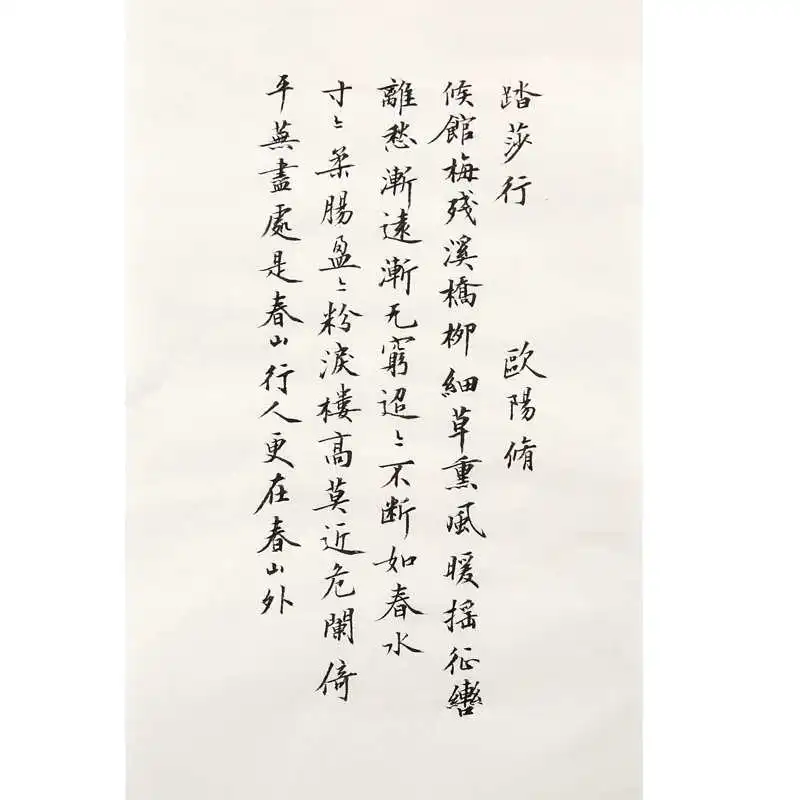 踏莎行 歐陽脩
候館梅殘溪橋柳細草熏風暖搖征轡
離愁漸遠漸无窮迢〻不断如春水
寸〻柔腸盈〻粉淚樓高莫近危闌倚
平蕪盡處是春山行人更在春山外